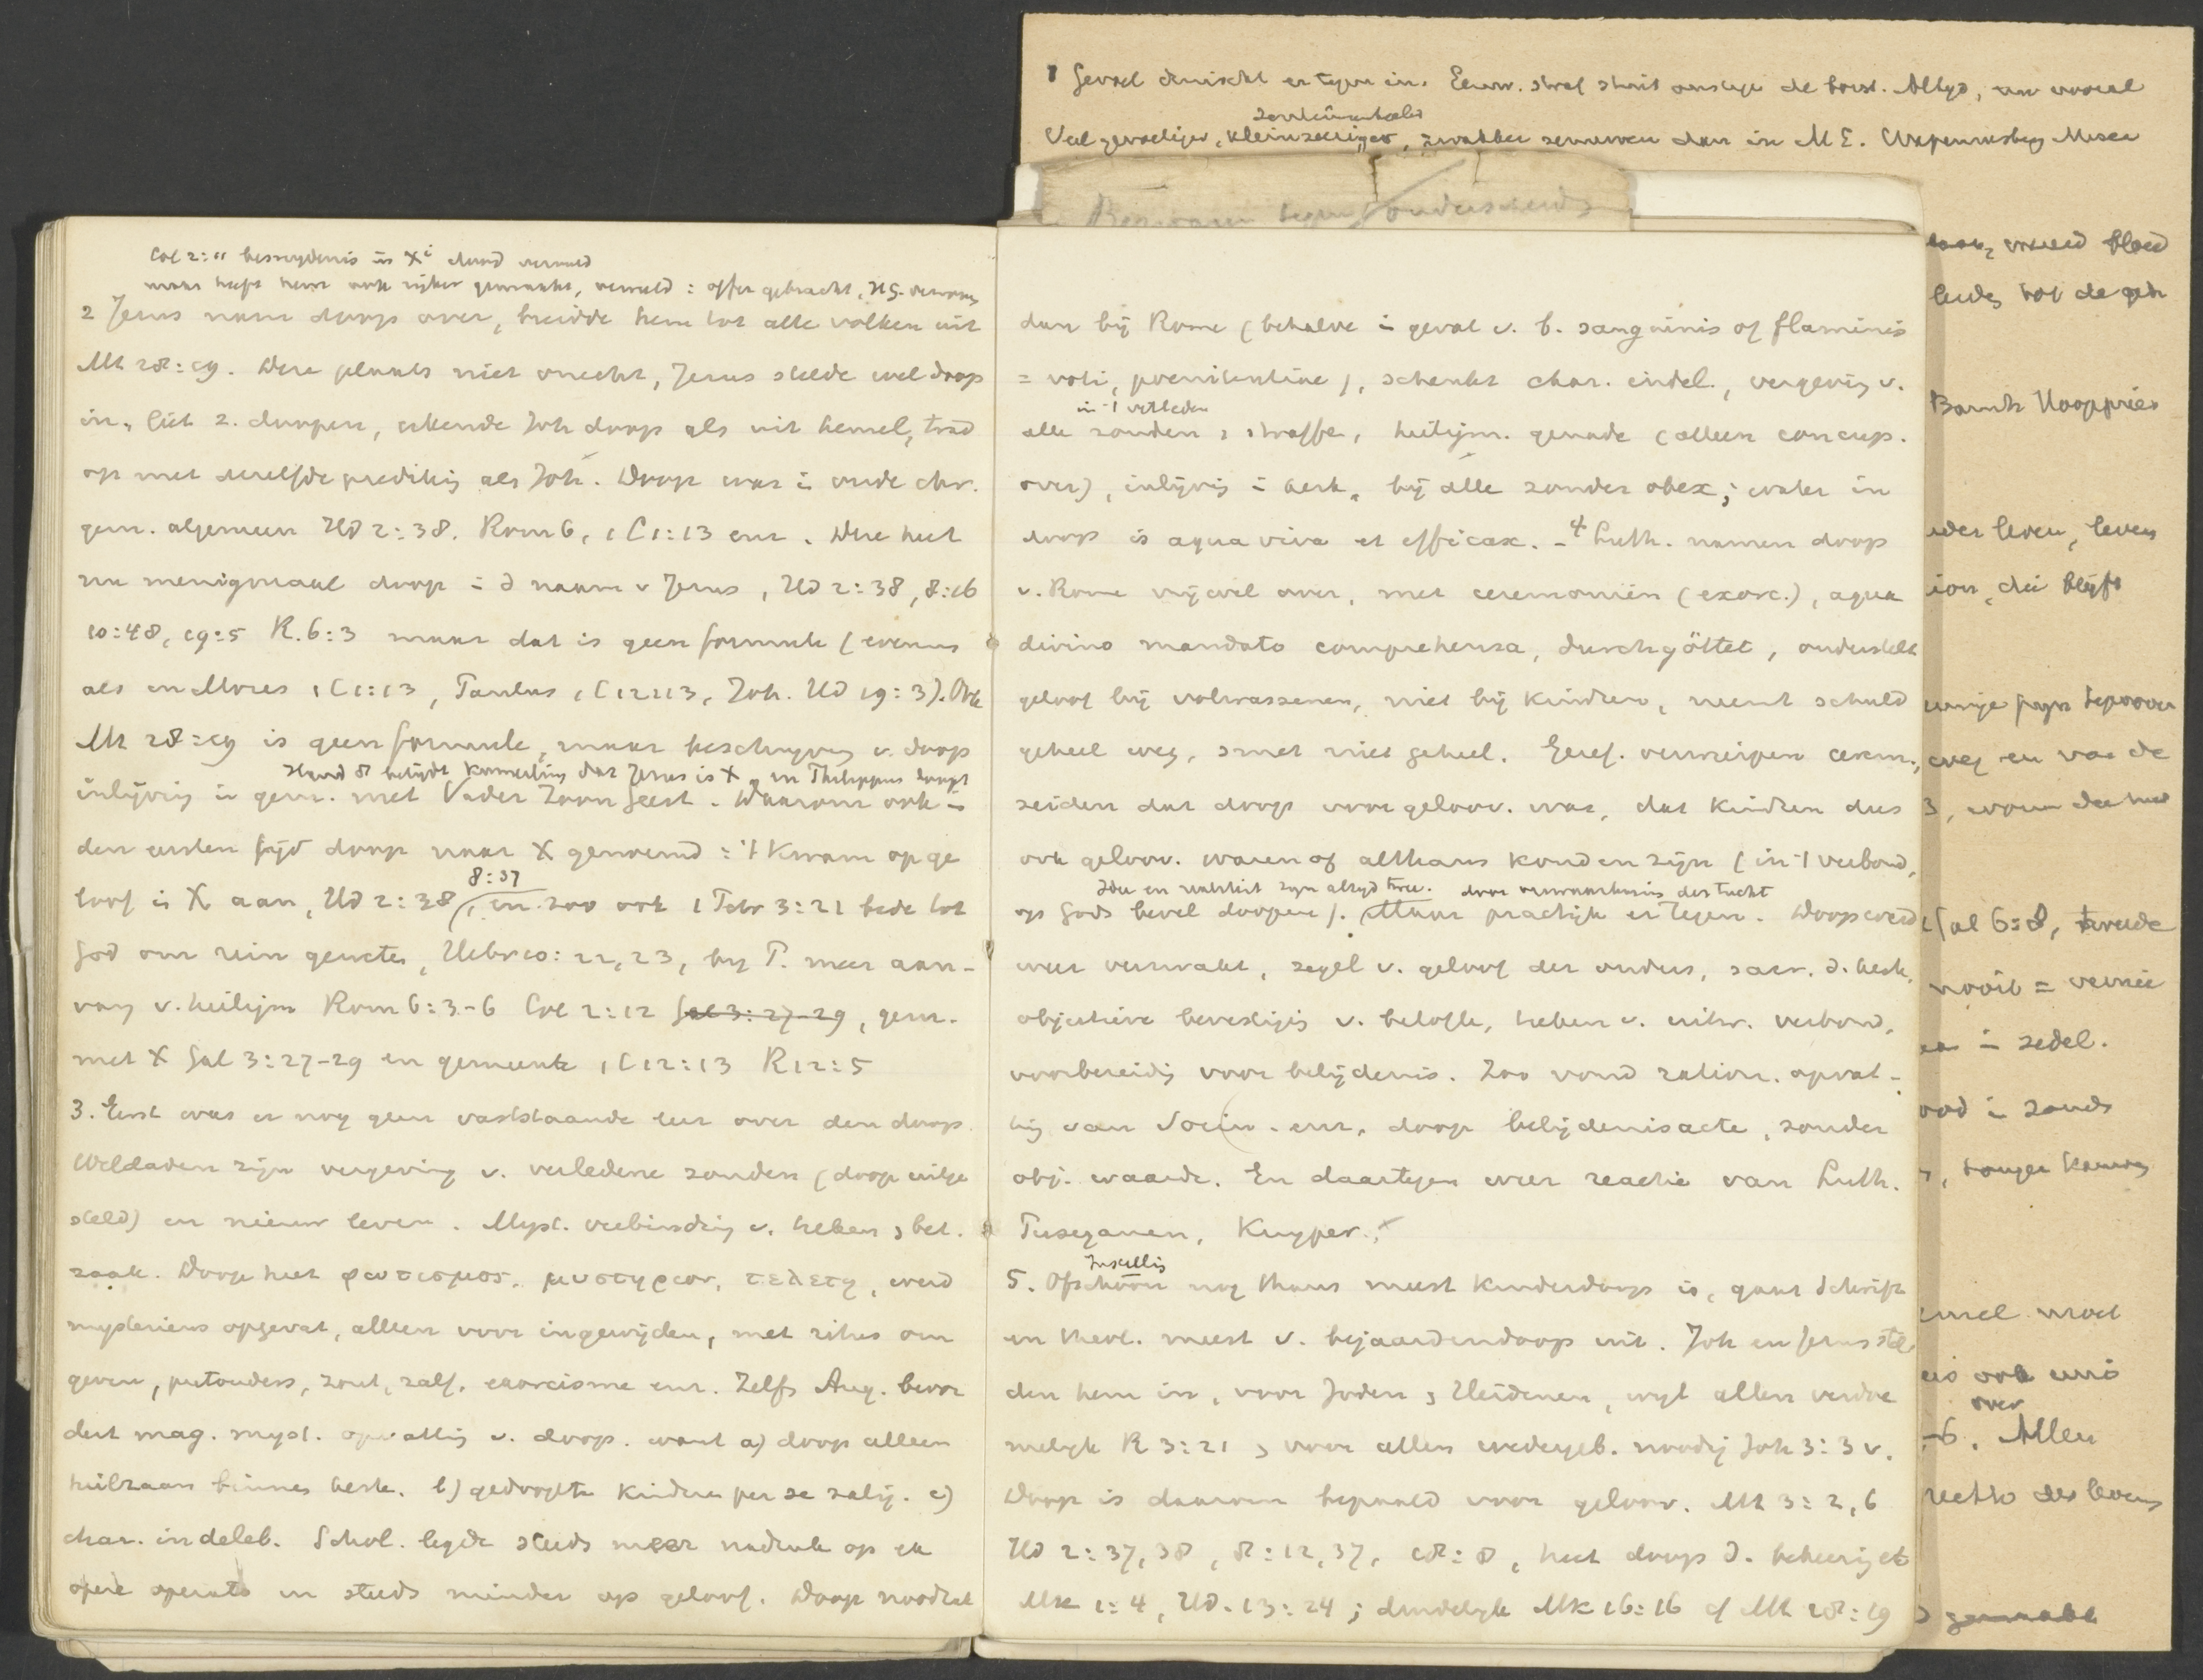 Col 2:11 besnydenis in Xi dood vervuld
maar heeft hem ook rijker gemaakt, vervuld : offer gebracht, HG. verworven
2 Jezus nam doop over, breidde hem tot alle volken uit
Mt 28:19. Deze plaats niet onecht, Jezus stelde wel doop
in, liet z. doopen, erkende Joh doop als uit hemel, trad
op met dezelfde prediking als Joh. Doop was i oude chr.
gem. algemeen Hd 2:38. Rom 6, 1 C 1:13 enz. Deze heet
nu menigmaal doop = d naam v Jezus, Hd 2:38, 8:16
10:48, 19:5 R. 6:3 maar dat is geen formule (evenmin
als in Mozes 1 C 1:13, Paulus 1 C 12:13, Joh. Hd 19:3). Ook
Mt 28:19 is geen formule, maar beschryving v. doop
Hand 8 belijdt kamerling dat Jezus is X en Philippus doopt
inlijving in gem. met Vader Zoon Geest. Waarom ook in
den eersten tijd doop naar X genoemd : 't kwam op ge
8:37
loof in X aan, Hd 2:38, en zoo ook 1 Petr 3:21 bede tot
God om rein geweten, Hebr 10:22, 23, by P. meer aan-
vang v. heiligm Rom 6:3-6 Col 2:12 Gal 3:27-29, gem.
met X Gal 3:27-29 en gemeente 1 C 12:13 R 12:5
3. Eerst was er nog geen vaststaande leer over den doop.
Weldaden zijn vergeving v. verledene zonden (doop uitge
steld) en nieuw leven. Myst. verbinding v. teken & bet.
zaak. Doop heet φωτισμος, μυστηριον, τελετη, werd
mysterieus opgevat, alleen voor ingewijden, met ritus om
geven, peetouders, zout, zalf, exorcisme enz. Zelfs Aug. bevor
dert mag. myst. opvatting v. doop. want a) doop alleen
heilzaam binnen kerk. b) gedoopte kindren per se zalig. c)
char. indeleb. Schol. legde steeds meer nadruk op ex
opere operato en steeds minder op geloof. Doop noodzak
dan bij Rome (behalve in geval v. b. sanguinis of flaminis
= voti, poenitentiae), schenkt char. indel., vergeving v.
in 't verleden
alle zonden & straffen, heiligm. genade (alleen concup.
over), inlijving in kerk, bij alle zonder obex; water in
doop is aqua viva et efficax. - 4 Luth. namen doop
v. Rome vrijwel over, met ceremoniën (exorc.), aqua
divino mandato comprehensa, durchgöttet, onderstelt
geloof bij volwassenen, niet bij kinderen, neemt schuld
geheel weg, smet niet geheel. Geref. verwerpen cerem.,
zeiden dat doop voor geloov. was, dat kindren dus
ook geloov. waren of althans konden zijn (in 't verbond,
Idee en realiteit zyn altyd twee. door verwaarloozing der tucht
op Gods bevel doopen). Maar practijk er tegen. Doop werd
weer verzwakt, zegel v. geloof der ouders, sacr. d. kerk,
objectieve bevestiging v. belofte, teken v. uitw. verbond,
voorbereiding voor belijdenis. Zoo vond ration. opvat-
ting van Socin. enz. doop belijdenisacte, zonder
obj. waarde. En daartegen weer reactie van Luth.
Puseyanen, Kuyper.
Instelling
5. Ofschoon nog thans meest kinderdoop is, gaat Schrift
en theol. meest v. bejaardendoop uit. Joh en Jezus stel
den hem in, voor Joden & Heidenen, wyl allen verdoe
melyk R 3:21 & voor allen wedergeb. noodig Joh 3:3 v.
Doop is daarom bepaald voor geloov. Mt 3:2,6
Hd 2:37, 38, 8:12, 37, 18:8, heet doop d. bekeering
Mk 1:4, Hd. 13:24; duidelyk Mk 16:16 cf Mt 28:19
1 Gevoel druischt er tegen in. Eeuw. straf stuit ons tegen de borst. Altyd, nu vooral
sentimenteeler
Veel gevoeliger, kleinzeeriger, zwakker zenuwen dan in ME.
Bezwaren tegen onderscheid
wreed bloed
leven, leven
ion, die blijft
weg en van de
Gal 6:8, tweede
nooit =
in zedel.
in zonde
over
-6. Allen
des levens